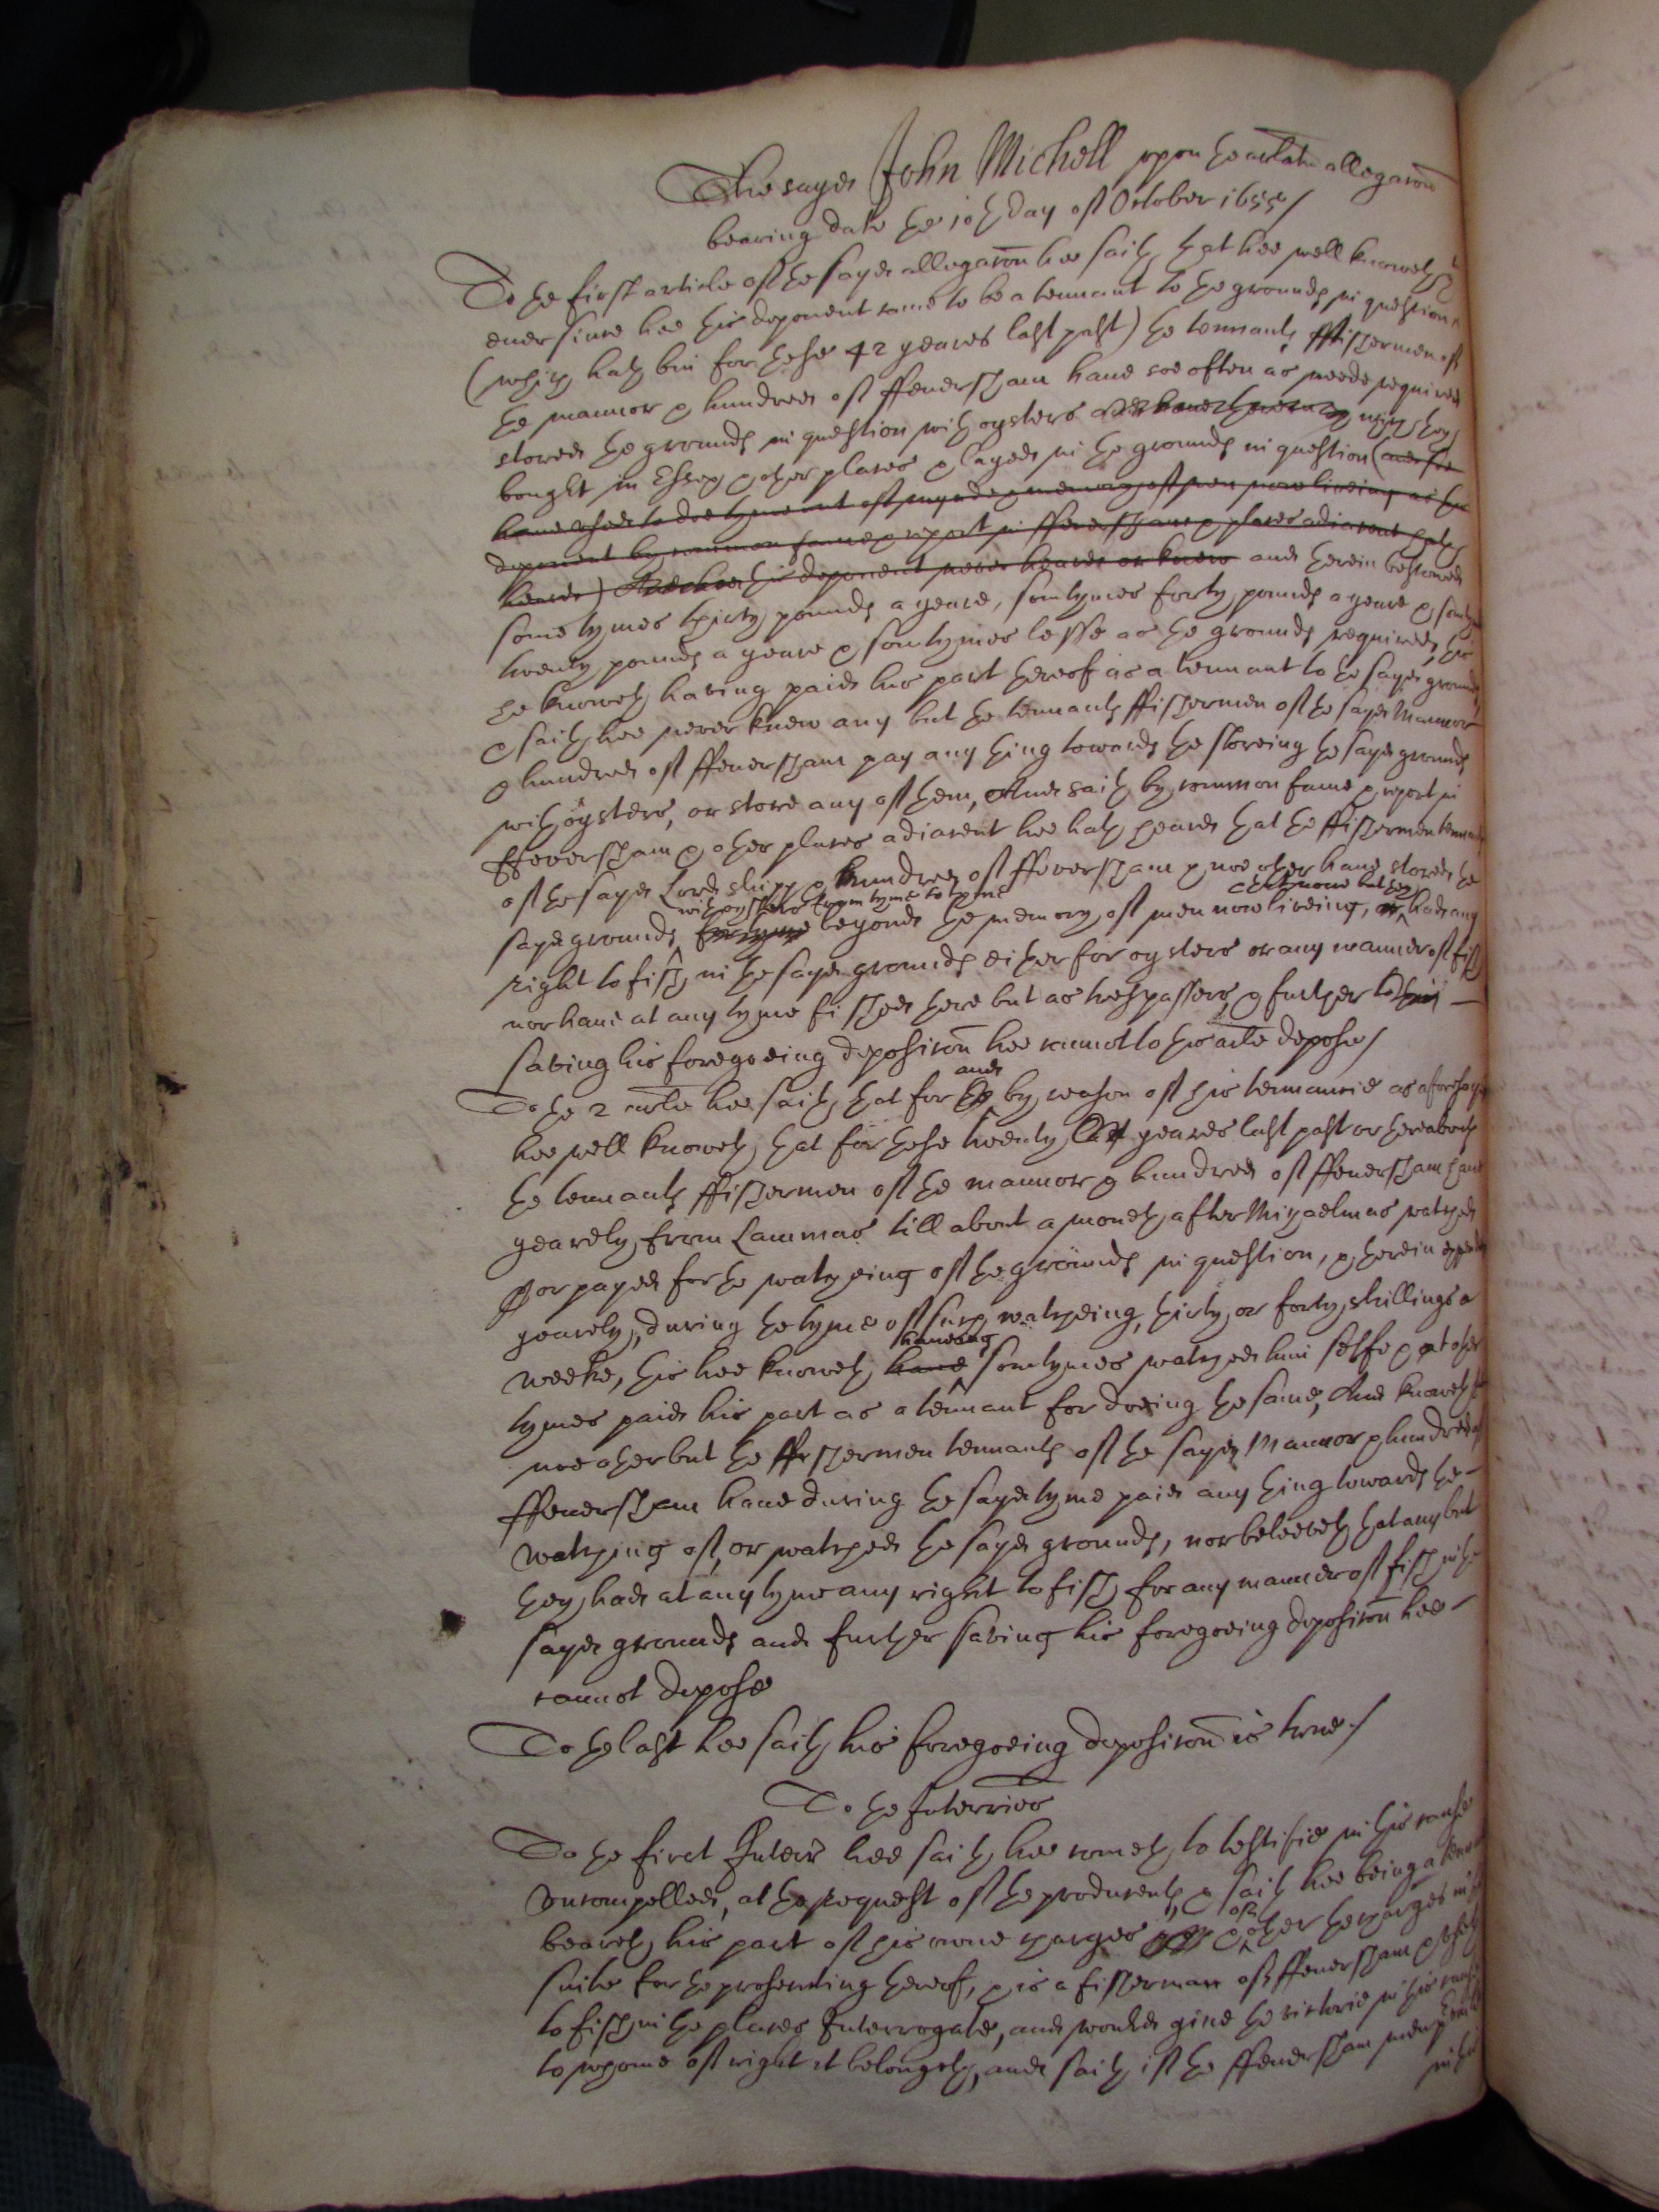 The sayd John Michell upon the arlate allegacōn
bearing date the 10th day of October 1655/
To the first article of the sayd allegacōn hee saith that hee well knoweth
ever since hee this deponent came to be a tennant to the grounds in question
(which hath bin for these 42 yeares last past) the tennants ffishermen of
the mannor & hundred of ffeversham have soe often as neede required
stored the grounds in question with oysters which they
bought in Essex & other places & layed in the grounds in question (and soe
have used to doe tyme out of mynde & memory of men now liveing as this
deponent by common fame & report in ffeversham & places adiacent hath
heard) this deponent never heard or knew and therein bestowed
some tymes thirty pounds a yeare, somtymes forty pounds a yeare & somtymes
twenty pounds a yeare & somtymes lesse as the grounds required, this
he knoweth having paid his part thereof as a tennant to the sayd grounds
& saith hee never knew any but the tennants ffishermen of the sayd Mannor
& hundred of ffeversham pay any thing towards the storeing the sayd grounds
with oysters, or store any of them, And saith by common fame & report in
ffeversham & other places adiacent hee hath heard that the ffishermen tennants
of the sayd Lordshipp & hundred of ffeversham & noe other have stored the
sayd grounds with oysters from tyme to tyme beyond the memory of men now liveing, & that none but they had any
right to fish in the sayd grounds either for oysters or any manner of fish
nor have at any tyme fished there but as trespassers, & further
saving his foregoeing deposicōn hee cannot to this arle depose/
To the 2 arle hee saith that for and by reason of his tennancie as aforesayd
hee well knoweth that for these twenty yeares last past or thereabouts
the tennants ffishermen of the mannor & hundred of ffeversham have
yearely from Lammas till about a moneth after Michaelmas watched
or payed for the watcheing of the grounds in question, & therein expended
yearely, during the tyme of such watcheing, thirty or forty shillings a
weeke, this hee knoweth have haveing somtymes watched him selfe & at other
tymes paid his part as a tennant for doeing the same, And knoweth that
noe other but the ffishermen tennants of the sayd Mannor & hundred of
ffeversham have during the sayd tyme paid any thing towards the
watching of, or watched the sayd grounds, nor beleeveth that any but
they had at any tyme any right to fish for any manner of fish in the
sayd grounds and further saving his foregoeing deposicōn hee
cannot depose
To the last hee saith his foregoeing deposicōn is true./
To the Interries
To the first Interr hee saith hee cometh to testifie in this cause
uncompelled, at the request of the producents, & saith hee being a tennant
beareth his part of his owne charges & of other the charges in this
suite for the prosecuting thereof, & is a fisherman of ffeversham & useth
to fish in the places Interrogate, and would give the victorie in this cause
to whome of right it belongeth, and saith if the ffeversham men
in this